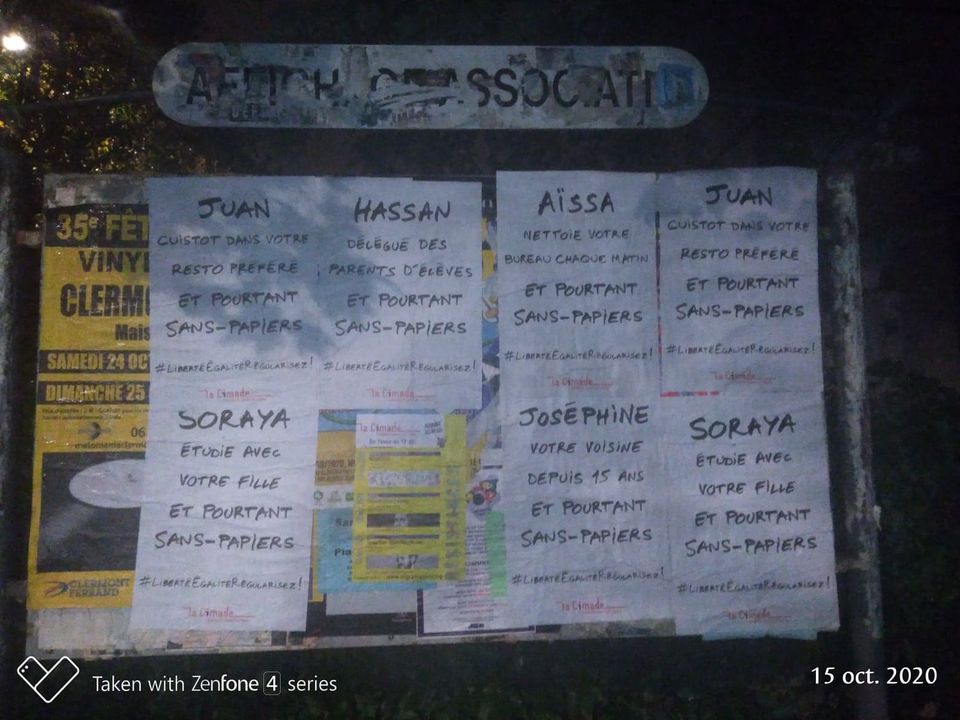 ASSOCIATI
35e FÊT
VINY
CLERMO
Mais
SAMEDI 24 OCT
DIMANCHE 25
06
CLERMONT
FERRAND
JUAN
CUISTOT DANS VOTRE
RESTO PRÉFÉRÉ
ET POURTANT
SANS-PAPIERS
#LIBERTÉEGALITÉRÉGULARISEZ!
la Cimade
HASSAN
DÉLÉGUÉ DES
PARENTS D'ÉLÈVES
ET POURTANT
SANS-PAPIERS
#LIBERTÉEGALITÉRÉGULARISEZ!
la Cimade
AÏSSA
NETTOIE VOTRE
BUREAU CHAQUE MATIN
ET POURTANT
SANS-PAPIERS
#LIBERTÉEGALITÉRÉGULARISEZ!
la Cimade
JUAN
CUISTOT DANS VOTRE
RESTO PRÉFÉRÉ
ET POURTANT
SANS-PAPIERS
#LIBERTÉEGALITÉRÉGULARISEZ!
la Cimade
SORAYA
ÉTUDIE AVEC
VOTRE FILLE
ET POURTANT
SANS-PAPIERS
#LIBERTÉEGALITÉRÉGULARISEZ!
la Cimade
la Cimade
JOSÉPHINE
VOTRE VOISINE
DEPUIS 15 ANS
ET POURTANT
SANS-PAPIERS
#LIBERTÉEGALITÉRÉGULARISEZ!
la Cimade
SORAYA
ÉTUDIE AVEC
VOTRE FILLE
ET POURTANT
SANS-PAPIERS
#LIBERTÉEGALITÉRÉGULARISEZ!
la Cimade
Taken with Zenfone 4 series
15 oct. 2020